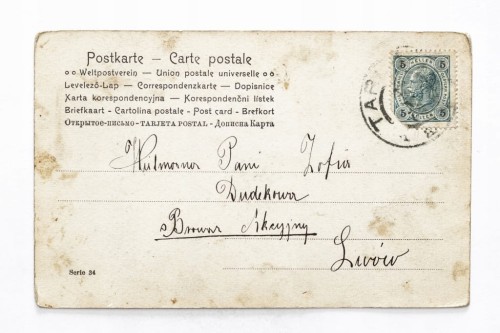 Postkarte — Carte postale
Weltpostverein — Union postale universelle
Levelező-Lap — Correspondenzkarte — Dopisnice
Karta korespondencyjna — Korespondenční lístek
Briefkaart - Cartolina postale - Post card - Brefkort
Открытое-письмо-TARJETA POSTAL-Дописна Карта
Pani Zofia
Dudekowa
Browar Akcyjny
Lwów
Serie 34
5 5
5 HELLER 5
TAR